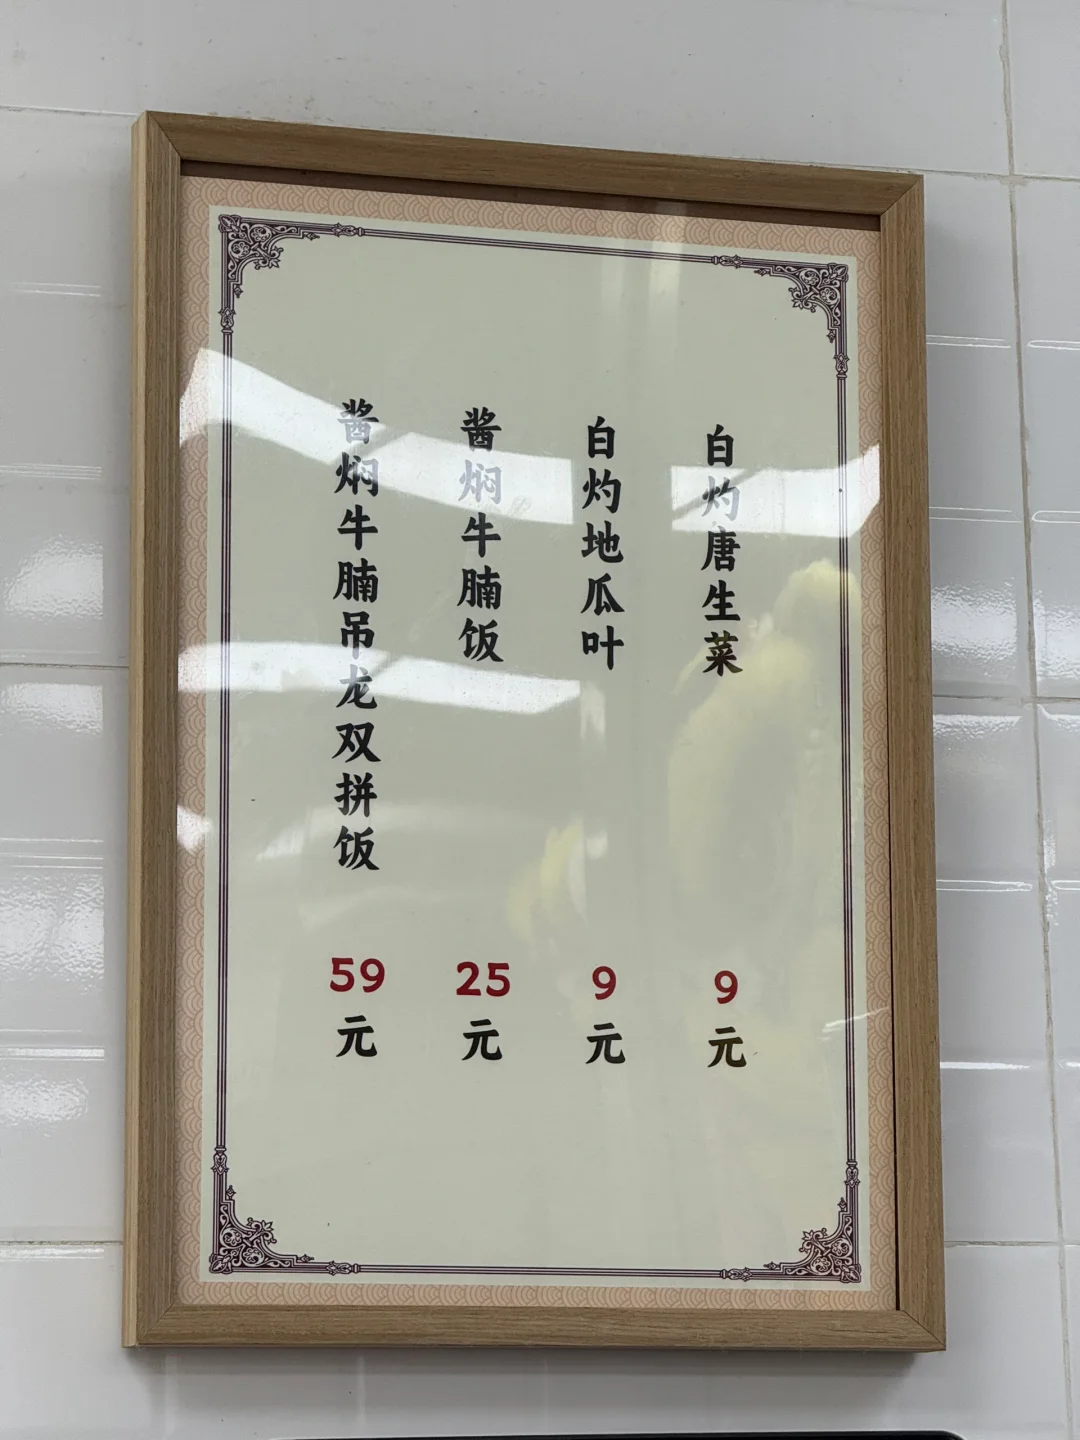 白灼唐生菜 9元
白灼地瓜叶 9元
酱焖牛腩饭 25元
酱焖牛腩吊龙双拼饭 59元